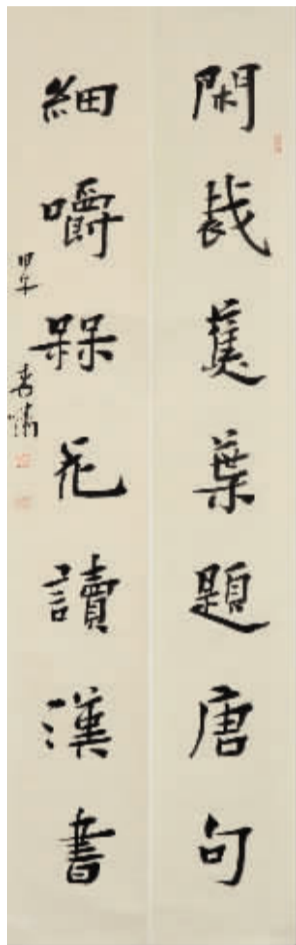 閑裁蕉葉題唐句
細嚼槑花讀漢書
甲午